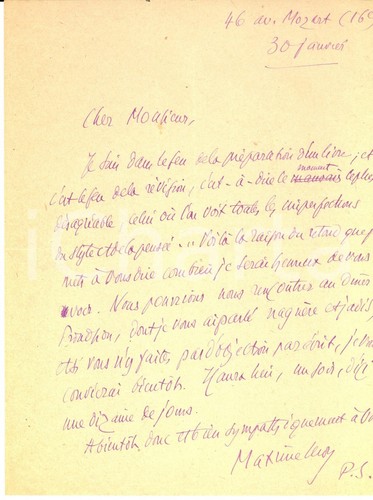 46 av. Mozart (16
30 janvier
Cher Monsieur,
Je suis dans le feu de la préparation d'un livre, et
c'est le feu de la révision, c'est-à-dire le moment le plus
désagréable, celui où l'on voit toutes les imperfections
du style et de la pensée... Voilà la raison du retard que je
mets à vous dire combien je serai heureux de vous
voir. Nous pourrions nous rencontrer au dîner
Proudhon, dont je vous ai parlé naguère et jadis,
et si vous n'y faites pas d'objection par écrit, je vous
convierai bientôt. Il aura lieu, un soir, d'ici
une dizaine de jours.
A bientôt donc et bien sympathiquement à vous
Maxime Leroy
P.S.